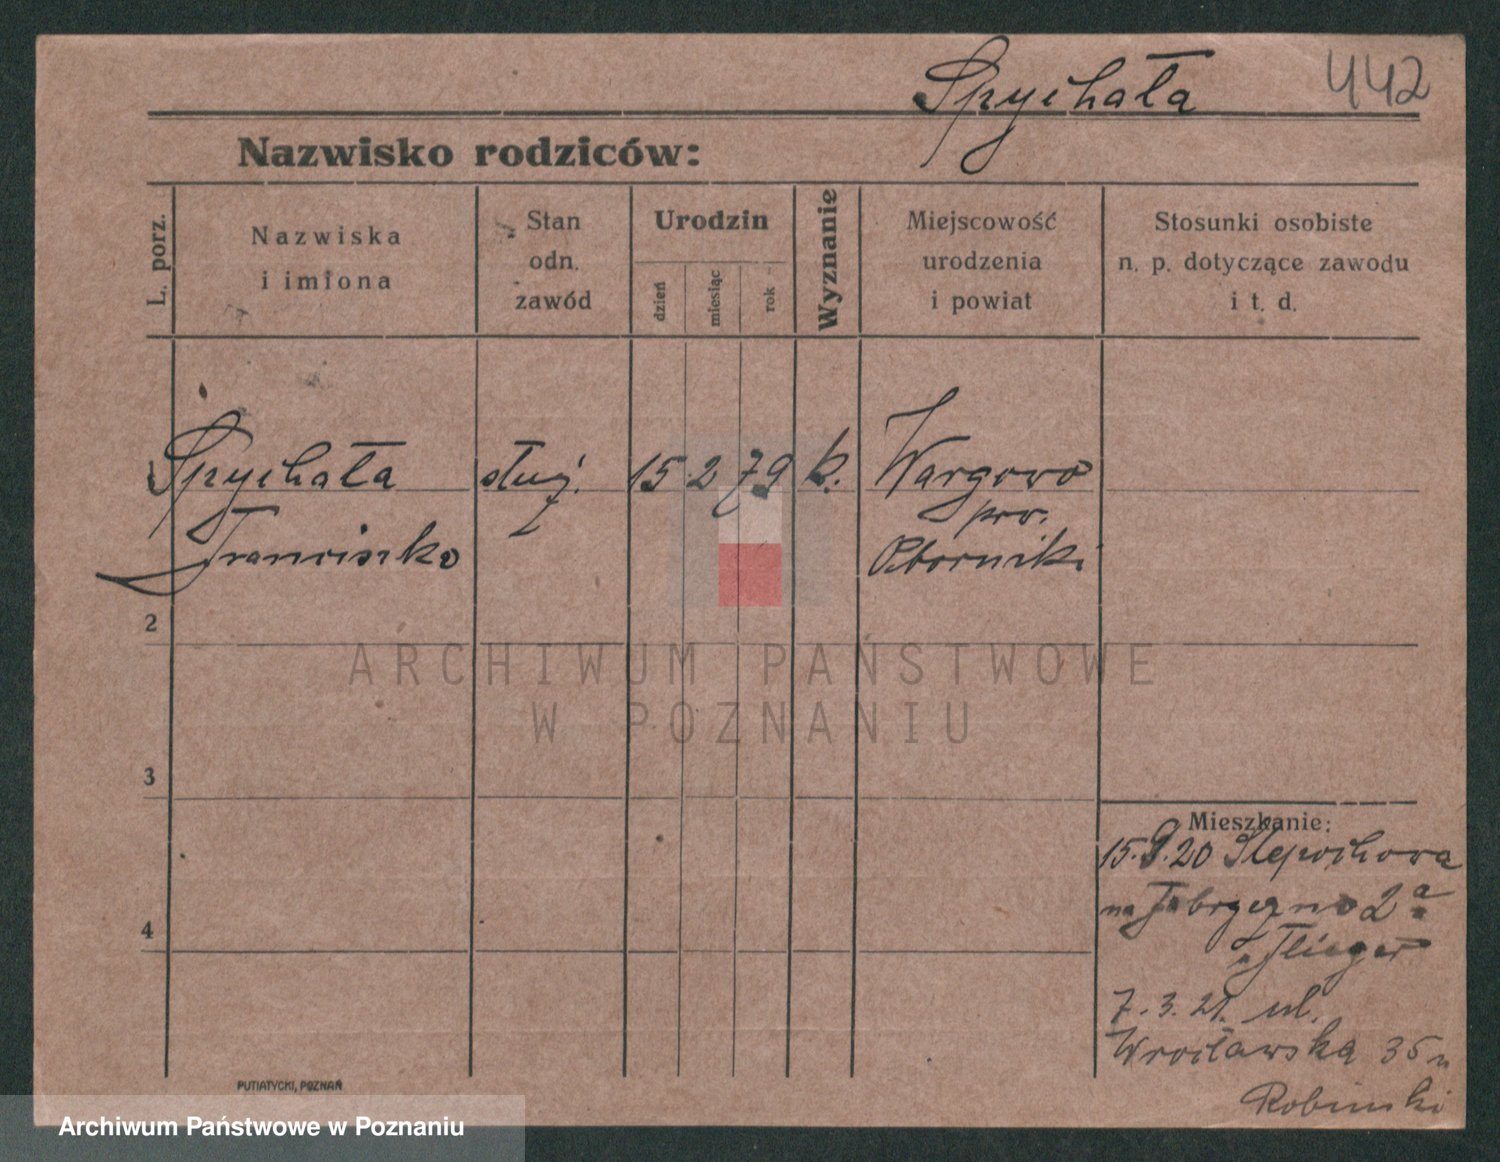 Spychała 442
Nazwisko rodziców:
L. porz.
Nazwiska
i imiona
Stan
odn.
zawód
Urodzin
dzień
miesiąc
rok
Wyznanie
Miejscowość
urodzenia
i powiat
Stosunki osobiste
n. p. dotyczące zawodu
i t. d.
1 Spychała służ. 15 2 79 k. Wargowo
pow.
Franciszka Oborniki
2
ARCHIWUM PAŃSTWOWE
W POZNANIU
3
Mieszkanie:
15.9.20
na 2a
u Flieger
4
7.3.21. ul.
Wrocławska 35 u
Robinski
PUTIATYCKI, POZNAŃ
Archiwum Państwowe w Poznaniu